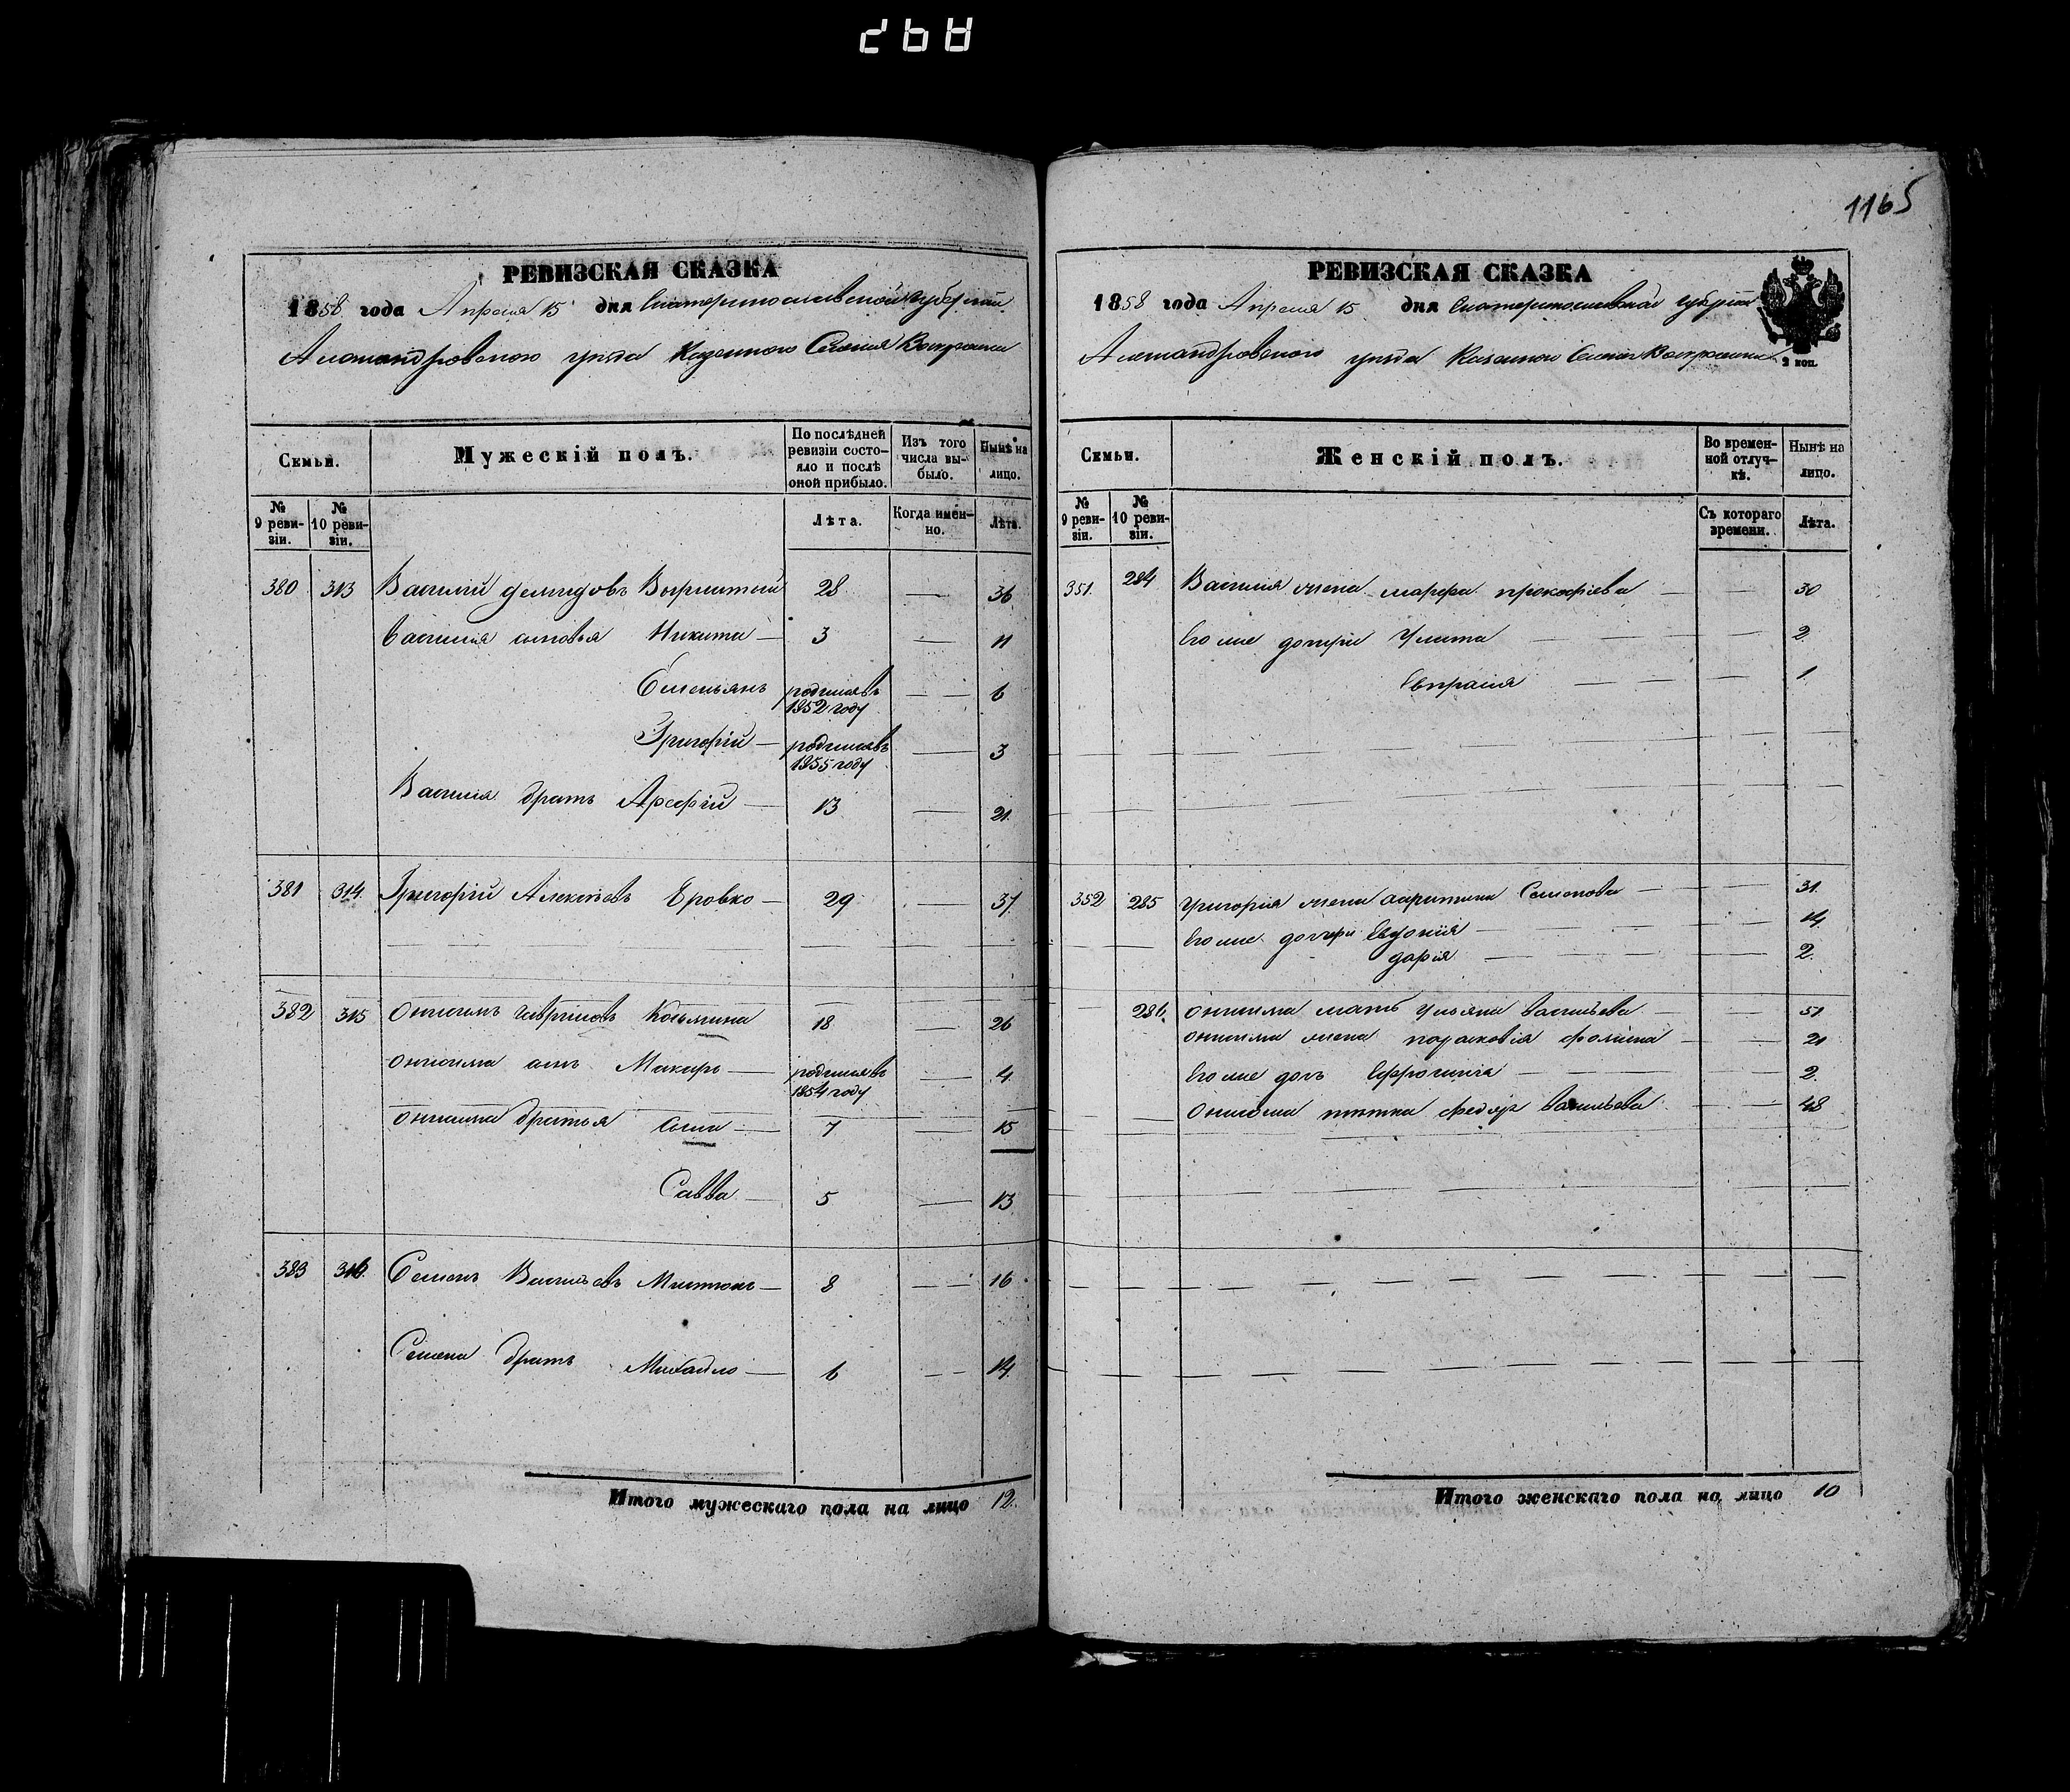 1165
РЕВИЗСКАЯ СКАЗКА
1858 года Апреля 15 дня Екатеринославской губерніи
Александровского уезда Казенного Селенія Воскресенки
Семьи.
Мужескій полъ.
По послѣдней ревизіи состояло и послѣ оной прибыло.
Изъ того числа выбыло.
Нынѣ на лицо.
№ 9 ревизіи.
№ 10 ревизіи.
Лѣта.
Когда именно.
Лѣта.
380 313 Василій Демидовъ 28 — 36
Василія сыновья Никита — 3 — 11
Емельянъ родился въ 1852 году — 6
Григорій — родился въ 1855 году — 3
Василія братъ Арефій — 13 — 21
381 314 Григорій Алексѣевъ Еровко — 29 — 37
382 315 Онисимъ Гавриловъ Козьмина 18 — 26
Онисима сынъ Макаръ — родился въ 1854 году — 4
Онисима братья — 7 — 15
Савва — 5 — 13
383 316 Семенъ Васильевъ — 8 — 16
Семена братъ Михайло — 6 — 14
Итого мужескаго пола на лицо 12.
РЕВИЗСКАЯ СКАЗКА
1858 года Апреля 15 дня Екатеринославской губерніи
Александровского уезда Казенного Селенія Воскресенки
2 коп.
Семьи.
Женскій полъ.
Во временной отлучкѣ.
Нынѣ на лицо.
№ 9 ревизіи.
№ 10 ревизіи.
Съ котораго времени.
Лѣта.
351. 284 Василія жена марфа прокофіева — 30
Его же дочери Улита — 2
Евпрасія — 1
352 285 Григорія жена Семенова — 31
Его же дочери Евдокія — 14
дарія — 2.
286. Онисима мать Ульяна Васильева — 51
Онисима жена парасковія фомина — 21
Его же дочь Ефросинія — 2.
Онисима тетка Васильева — 48
Итого женскаго пола на лицо 10